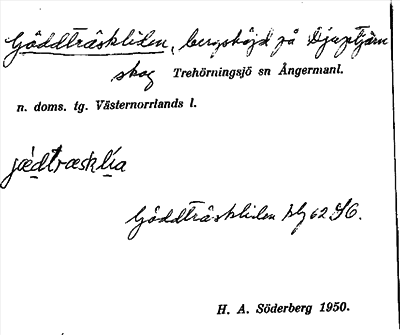 Gäddträskliden, bergshöjd på Djuptjärn
skog Trehörningsjö sn Ångermanl.
n. doms. tg. Västernorrlands l.
jædtræsklia
Gäddträskliden blg 62 SO.
H. A. Söderberg 1950.